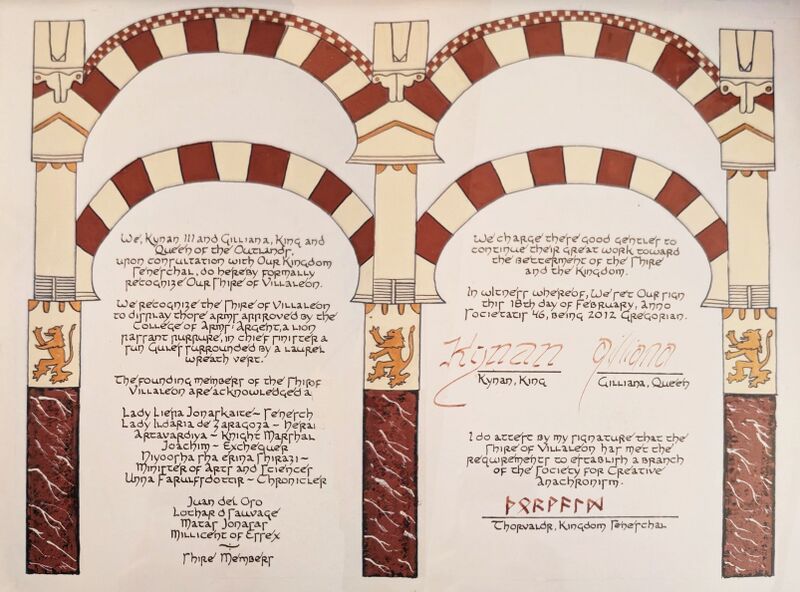 We, Kynan III and Gilliana, King and
Queen of the Outlands,
upon consultation with Our Kingdom
Seneschal, do hereby formally
recognize Our Shire of Villaleon.
We recognize the Shire of Villaleon
to display those arms approved by the
College of Arms: Argent, a lion
rampant purpure, in chief sinister a
sun Gules surrounded by a laurel
wreath vert.
The founding members of the Shire of
Villaleon are acknowledged
Lady Liesa Jonaskaite ~ Senesch
Lady Ildaria de Zaragoza ~ Heral
Artavardiya ~ Knight Marshal
Joachim ~ Exchequer
Niyoosha Sha'erina Shirazi ~
Minister of Arts and Sciences
Unna Farulfsdottir ~ Chronicler
Juan del Oro
Lothar d Sauvage
Matas Jonasas
Millicent of Essex
~
Shire Members
We charge these good gentles to
continue their great work toward
the betterment of the Shire
and the Kingdom.
In witness whereof, We set Our sign
this 18th day of February, Anno
Societatis 46, being 2012 Gregorian.
Kynan Gilliana
Kynan, King Gilliana, Queen
I do attest by my signature that the
Shire of Villaleon has met the
requirements to establish a branch
of the Society for Creative
Anachronism.
ᚦᛟᚱᚹᚨᛚᛞ
Thorvaldr, Kingdom Seneschal